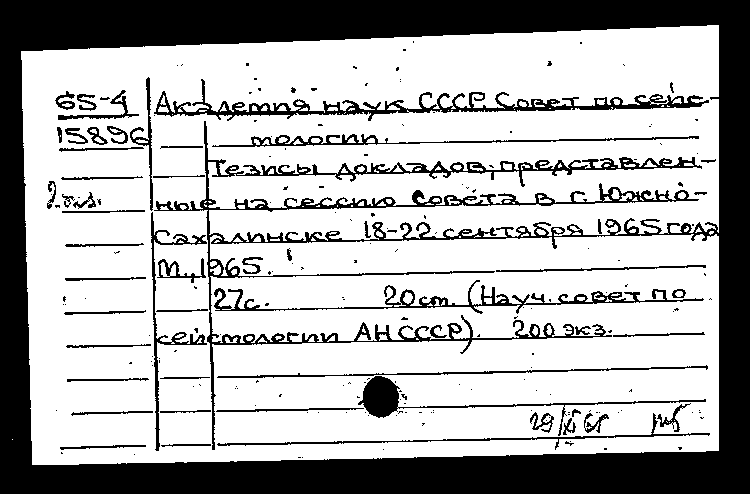 65-4 Академия наук СССР. Совет по сейс-
15896 мологии.
Тезисы докладов, представлен-
2 экз. ные на сессию совета в г. Южно-
Сахалинске 18-22 сентября 1965 года
М., 1965.
27с. 20 cm. (Науч. совет по
сейсмологии АН СССР). 200 экз.